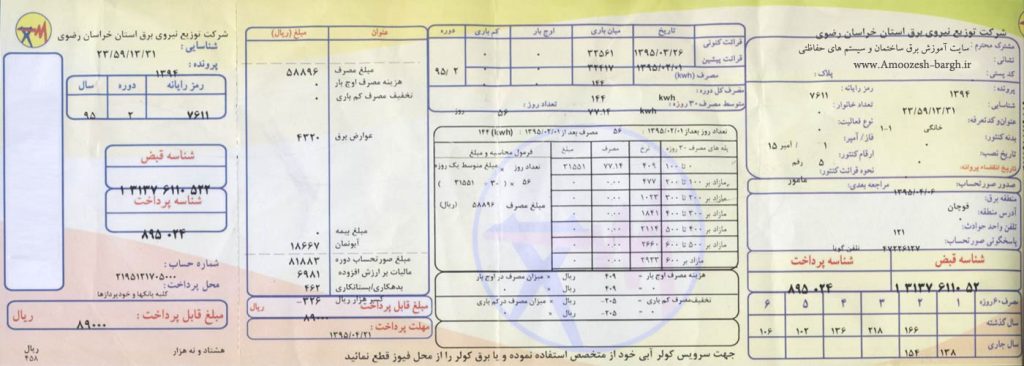 شرکت توزیع نیروی برق استان خراسان رضوی
مشترک محترم:
سایت آموزش برق ساختمان و سیستم های حفاظتی
نشانی:
www.Amoozesh-bargh.ir
کد پستی:
پلاک:
پرونده: ۱۳۹۴ رمز رایانه: ۷۶۱۱
شناسایی: ۲۳/۵۹/۱۳/۳۱ تعداد خانوار: ۰
عنوان و کد تعرفه: خانگی ۱-۱ نوع فعالیت: ۰
بدنه کنتور: ۰ فاز / آمپر: ۱ / آمپر ۱۵
تاریخ نصب: ارقام کنتور: ۵ رقم
تاریخ انقضاء پروانه: نحوه قرائت کنتور: مامور
صدور صورتحساب: مراجعه بعدی: ۱۳۹۵/۰۴/۰۶
منطقه برق: قوچان
آدرس منطقه: ۰
تلفن واحد حوادث: ۱۲۱
پاسخگوئی صورتحساب: تلفن گویا ۴۷۲۲۶۱۲۷
شناسه قبض شناسه پرداخت
۱ ۳۱۳۷ ۶۱۱۰ ۵۲ ۸۹۵ ۰۲۴
مصرف ۶۰ روزه ۱ ۲ ۳ ۴ ۵ ۶
سال گذشته ۱۶۶ ۲۱۸ ۱۳۶ ۱۰۲ ۱۰۶
سال جاری ۱۳۸ ۱۵۴
تاریخ میان باری اوج بار کم باری دوره
قرائت کنونی ۱۳۹۵/۰۳/۲۶ ۳۲۵۶۱ ۰ ۰
قرائت پیشین ۱۳۹۵/۰۲/۰۱ ۳۲۴۱۷ ۰ ۰
۹۵/ ۲
مصرف (kwh) ۱۴۴
مصرف کل دوره: ۱۴۴ kwh
متوسط مصرف ۳۰ روزه: ۷۷.۱۴ kwh تعداد روز: ۵۶ روز
تعداد روز بعد از ۱۳۹۵/۰۲/۰۱: ۵۶ مصرف بعد از ۱۳۹۵/۰۲/۰۱: ۱۴۴ (kwh)
پله های مصرف ۳۰ روزه نرخ مصرف مبلغ فرمول محاسبه و مبلغ
۰ تا ۱۰۰ ۴۰۹ ۷۷.۱۴ ۳۱۵۵۱
مازاد بر ۱۰۰ تا ۲۰۰ ۴۷۷ ۰.۰۰
مازاد بر ۲۰۰ تا ۳۰۰ ۱۰۲۳ ۰.۰۰
مازاد بر ۳۰۰ تا ۴۰۰ ۱۸۴۱ ۰.۰۰
مازاد بر ۴۰۰ تا ۵۰۰ ۲۱۱۴ ۰.۰۰
مازاد بر ۵۰۰ تا ۶۰۰ ۲۶۶۰ ۰.۰۰
مازاد بر ۶۰۰ ۲۹۳۳ ۰.۰۰
تعداد روز × مبلغ متوسط یک روزه
۵۶ × ( ۳۰ ÷ ۳۱۵۵۱ )
مبلغ مصرف ۵۸۸۹۶ (ریال)
هزینه مصرف اوج بار = ۴۰۹ ریال × میزان مصرف در اوج بار
= ۴۰۹ ریال × ۰
تخفیف مصرف کم باری = ۲۰۵- ریال × میزان مصرف در کم باری
= ۲۰۵- ریال × ۰
جهت سرویس کولر آبی خود از متخصص استفاده نموده و یا برق کولر را از محل فیوز قطع نمائید
عنوان مبلغ (ریال)
مبلغ مصرف ۵۸۸۹۶
هزینه مصرف اوج بار ۰
تخفیف مصرف کم باری ۰
عوارض برق ۴۳۲۰
مبلغ بیمه ۰
آبونمان ۱۸۶۶۷
مبلغ صورتحساب دوره ۸۱۸۸۳
مالیات بر ارزش افزوده ۶۹۸۱
بدهکاری/بستانکاری ۴۶۲
کسر هزار ریال -۳۲۶
مبلغ قابل پرداخت: ۸۹۰۰۰
مهلت پرداخت: ۱۳۹۵/۰۴/۲۱
شرکت توزیع نیروی برق استان خراسان رضوی
شناسایی: ۲۳/۵۹/۱۳/۳۱
پرونده: ۱۳۹۴
رمز رایانه دوره سال
۷۶۱۱ ۲ ۹۵
شناسه قبض
۱ ۳۱۳۷ ۶۱۱۰ ۵۲۲
شناسه پرداخت
۸۹۵ ۰۲۴
شماره حساب: ۲۱۹۵۱۳۱۷۰۵۰۰۰
محل پرداخت:
کلیه بانکها و خودپردازها
مبلغ قابل پرداخت: ۸۹۰۰۰ ریال
هشتاد و نه هزار ریال
۴۵۸